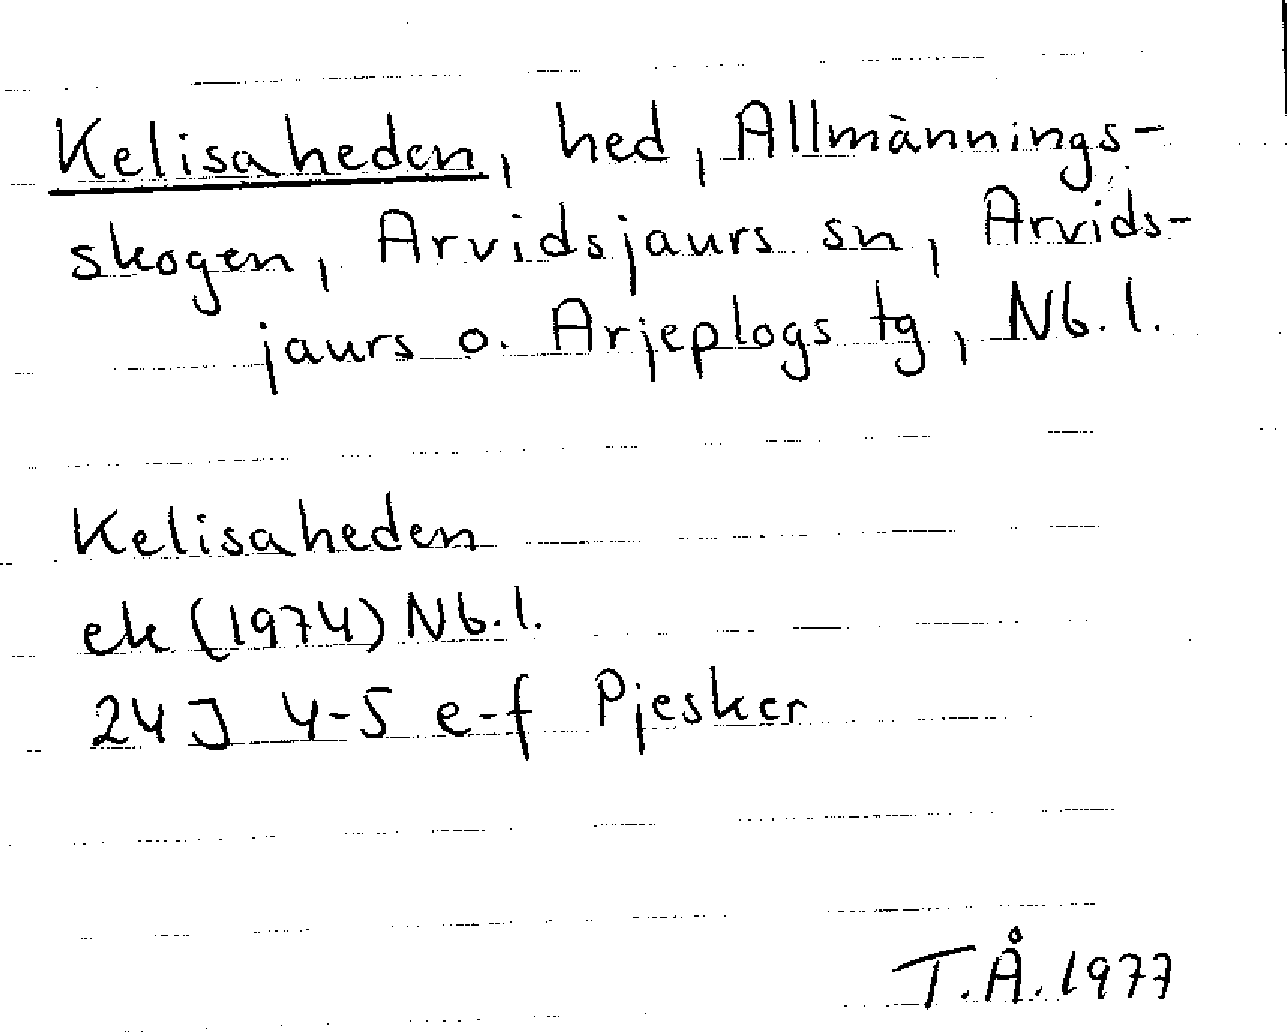 Kelisaheden, hed, Allmännings-
skogen, Arvidsjaurs sn, Arvids-
jaurs o. Arjeplogs tg, Nb. l.
Kelisaheden
ek (1974) Nb. l.
24 J 4-5 e-f Pjesker
T.Å. 1977